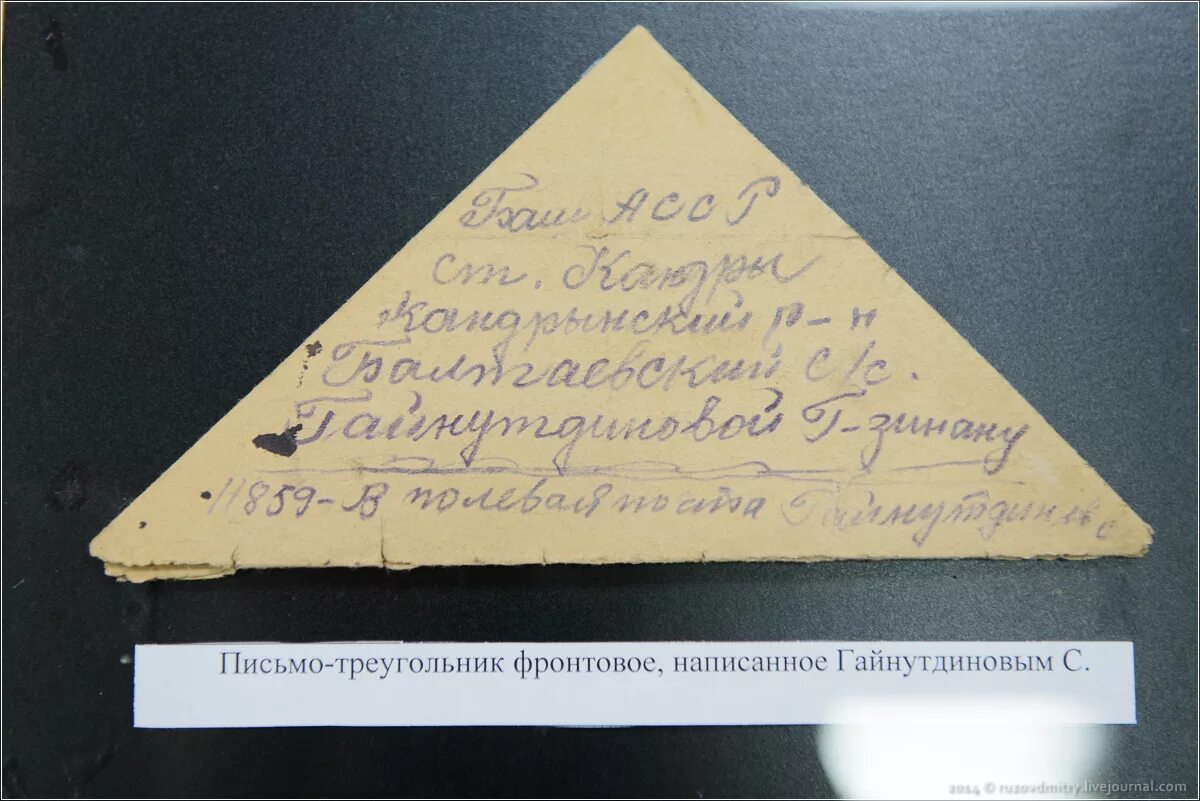 Баш АССР
ст. Кандры
Кандрынский р-н
Балтаевский с/с.
Гайнутдиновой Г-зинану
11859-В полевая почта Гайнутдинов С
Письмо-треугольник фронтовое, написанное Гайнутдиновым С.
2014 © ruzovdmitry.livejournal.com